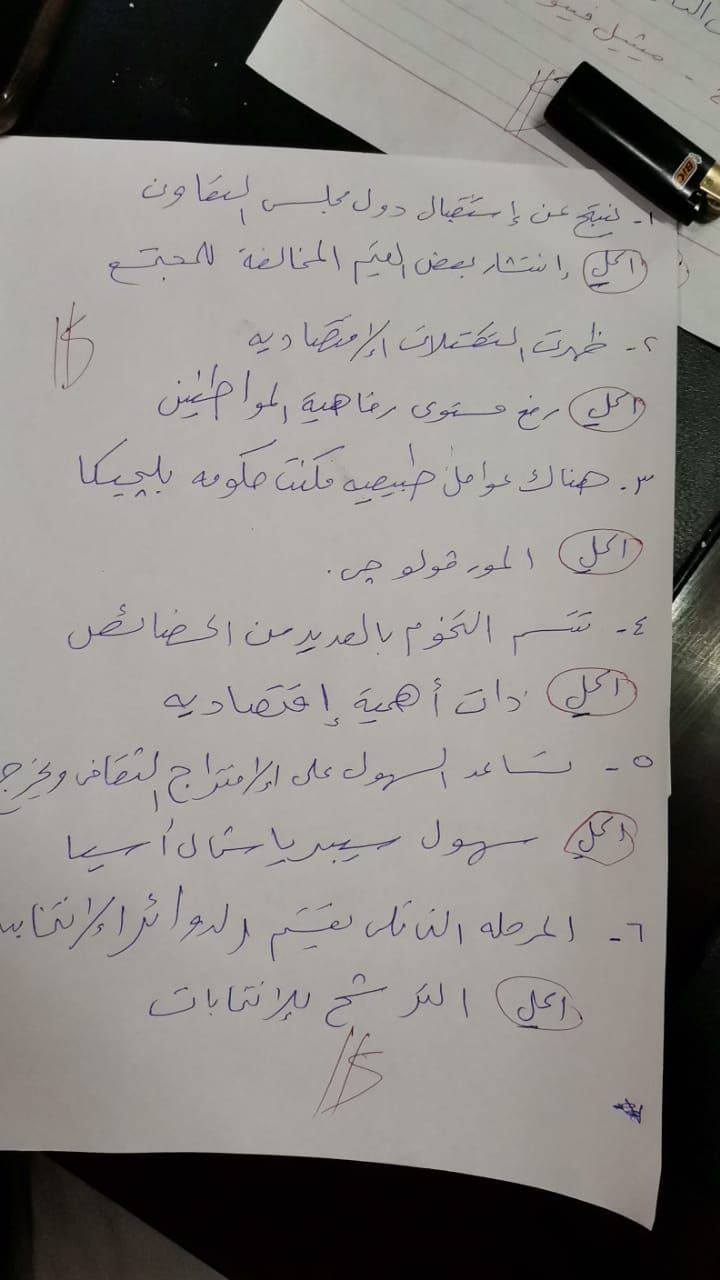 ميشيل فيو
BIC
١- نتج عن إستقبال دول مجلس التعاون
الحل إنتشار بعض القيم المخالفة للمجتمع
٢- ظهرت التكتلات الإقتصاديه
الحل رفع مستوى رفاهية المواطنين
٣- هناك عوامل طبيعيه مكنت حكومه بلجيكا
الحل المورفولوجي.
٤- تتسم التخوم بالعديد من الخصائص
الحل ذات أهمية إقتصاديه
٥- تساعد السهول على الإمتزاج الثقافى ويخرج
الحل سهول سيبريا شمال أسيا
٦- المرحله التى تلى تقسيم الدوائر الإنتخابيه
الحل الترشح للإنتخابات